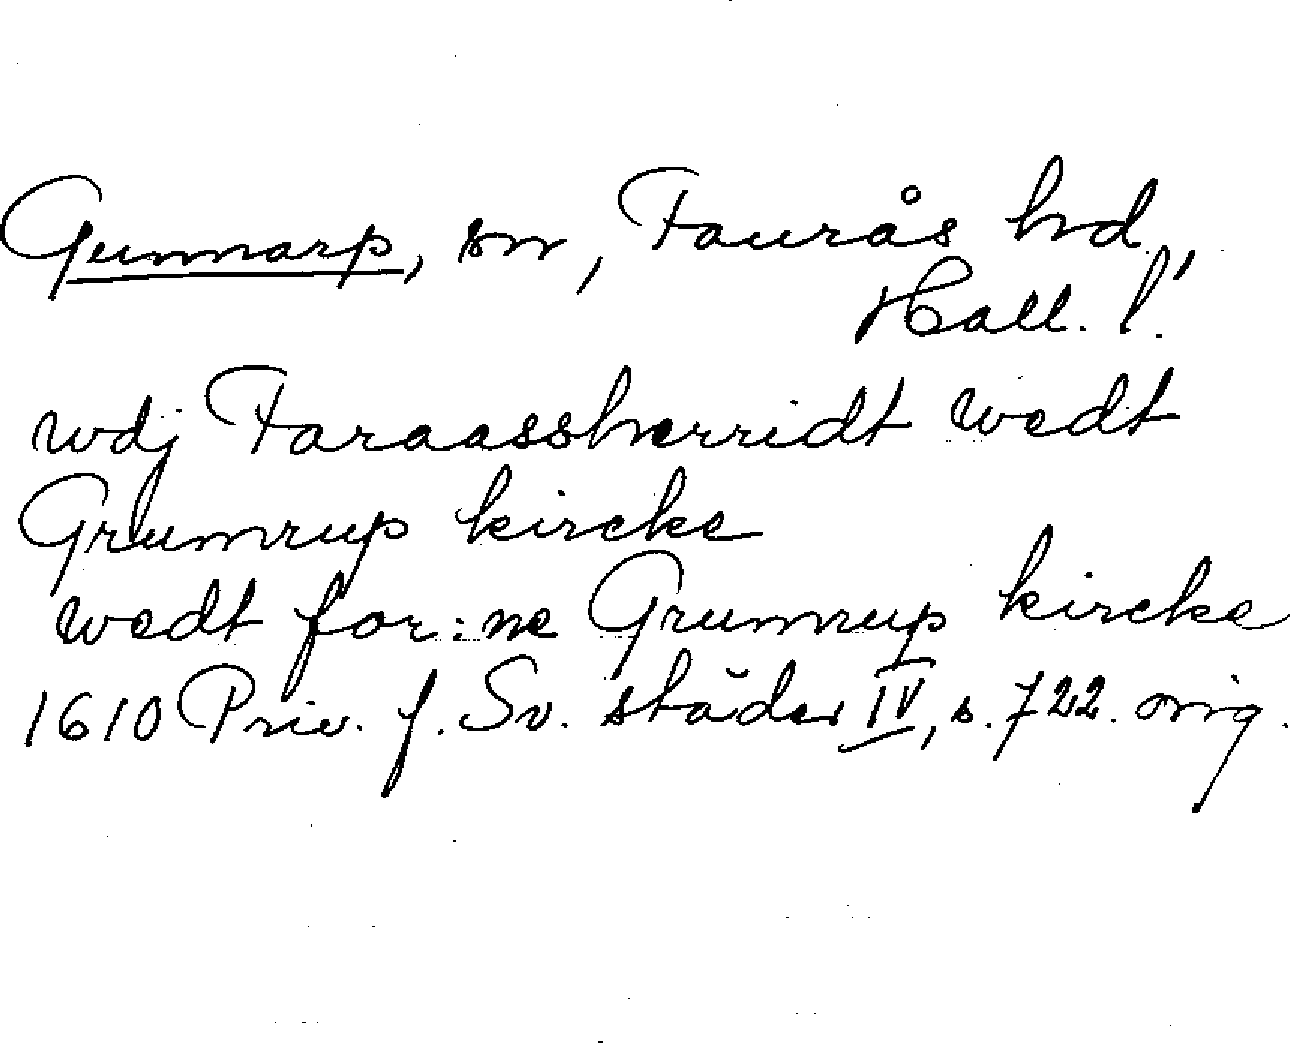 Gunnarp, sn, Faurås hd,
Hall. l.
wdj Faraassherridt wedt
Grumrup kircke
wedt for:ne Grumrup kircke
1610 Priv. f. Sv. städer IV, s. 722. orig.